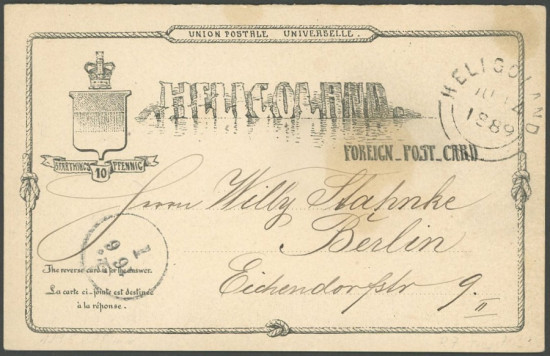 UNION POSTALE UNIVERSELLE.
HELIGOLAND
HELIGOLAND
1889
FOREIGN_POST_CARD
FARTHING 10 PFENNIG
Herrn Willy Stahnke
Berlin
Eichendorfstr 9. II
The reverse card is for the answer.
La carte ci-jointe est destinée
à la réponse.